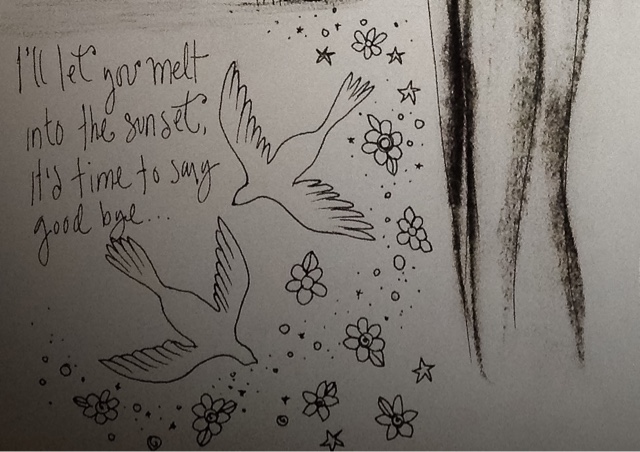 I'll let you melt
into the sunset,
It's time to say
good bye...